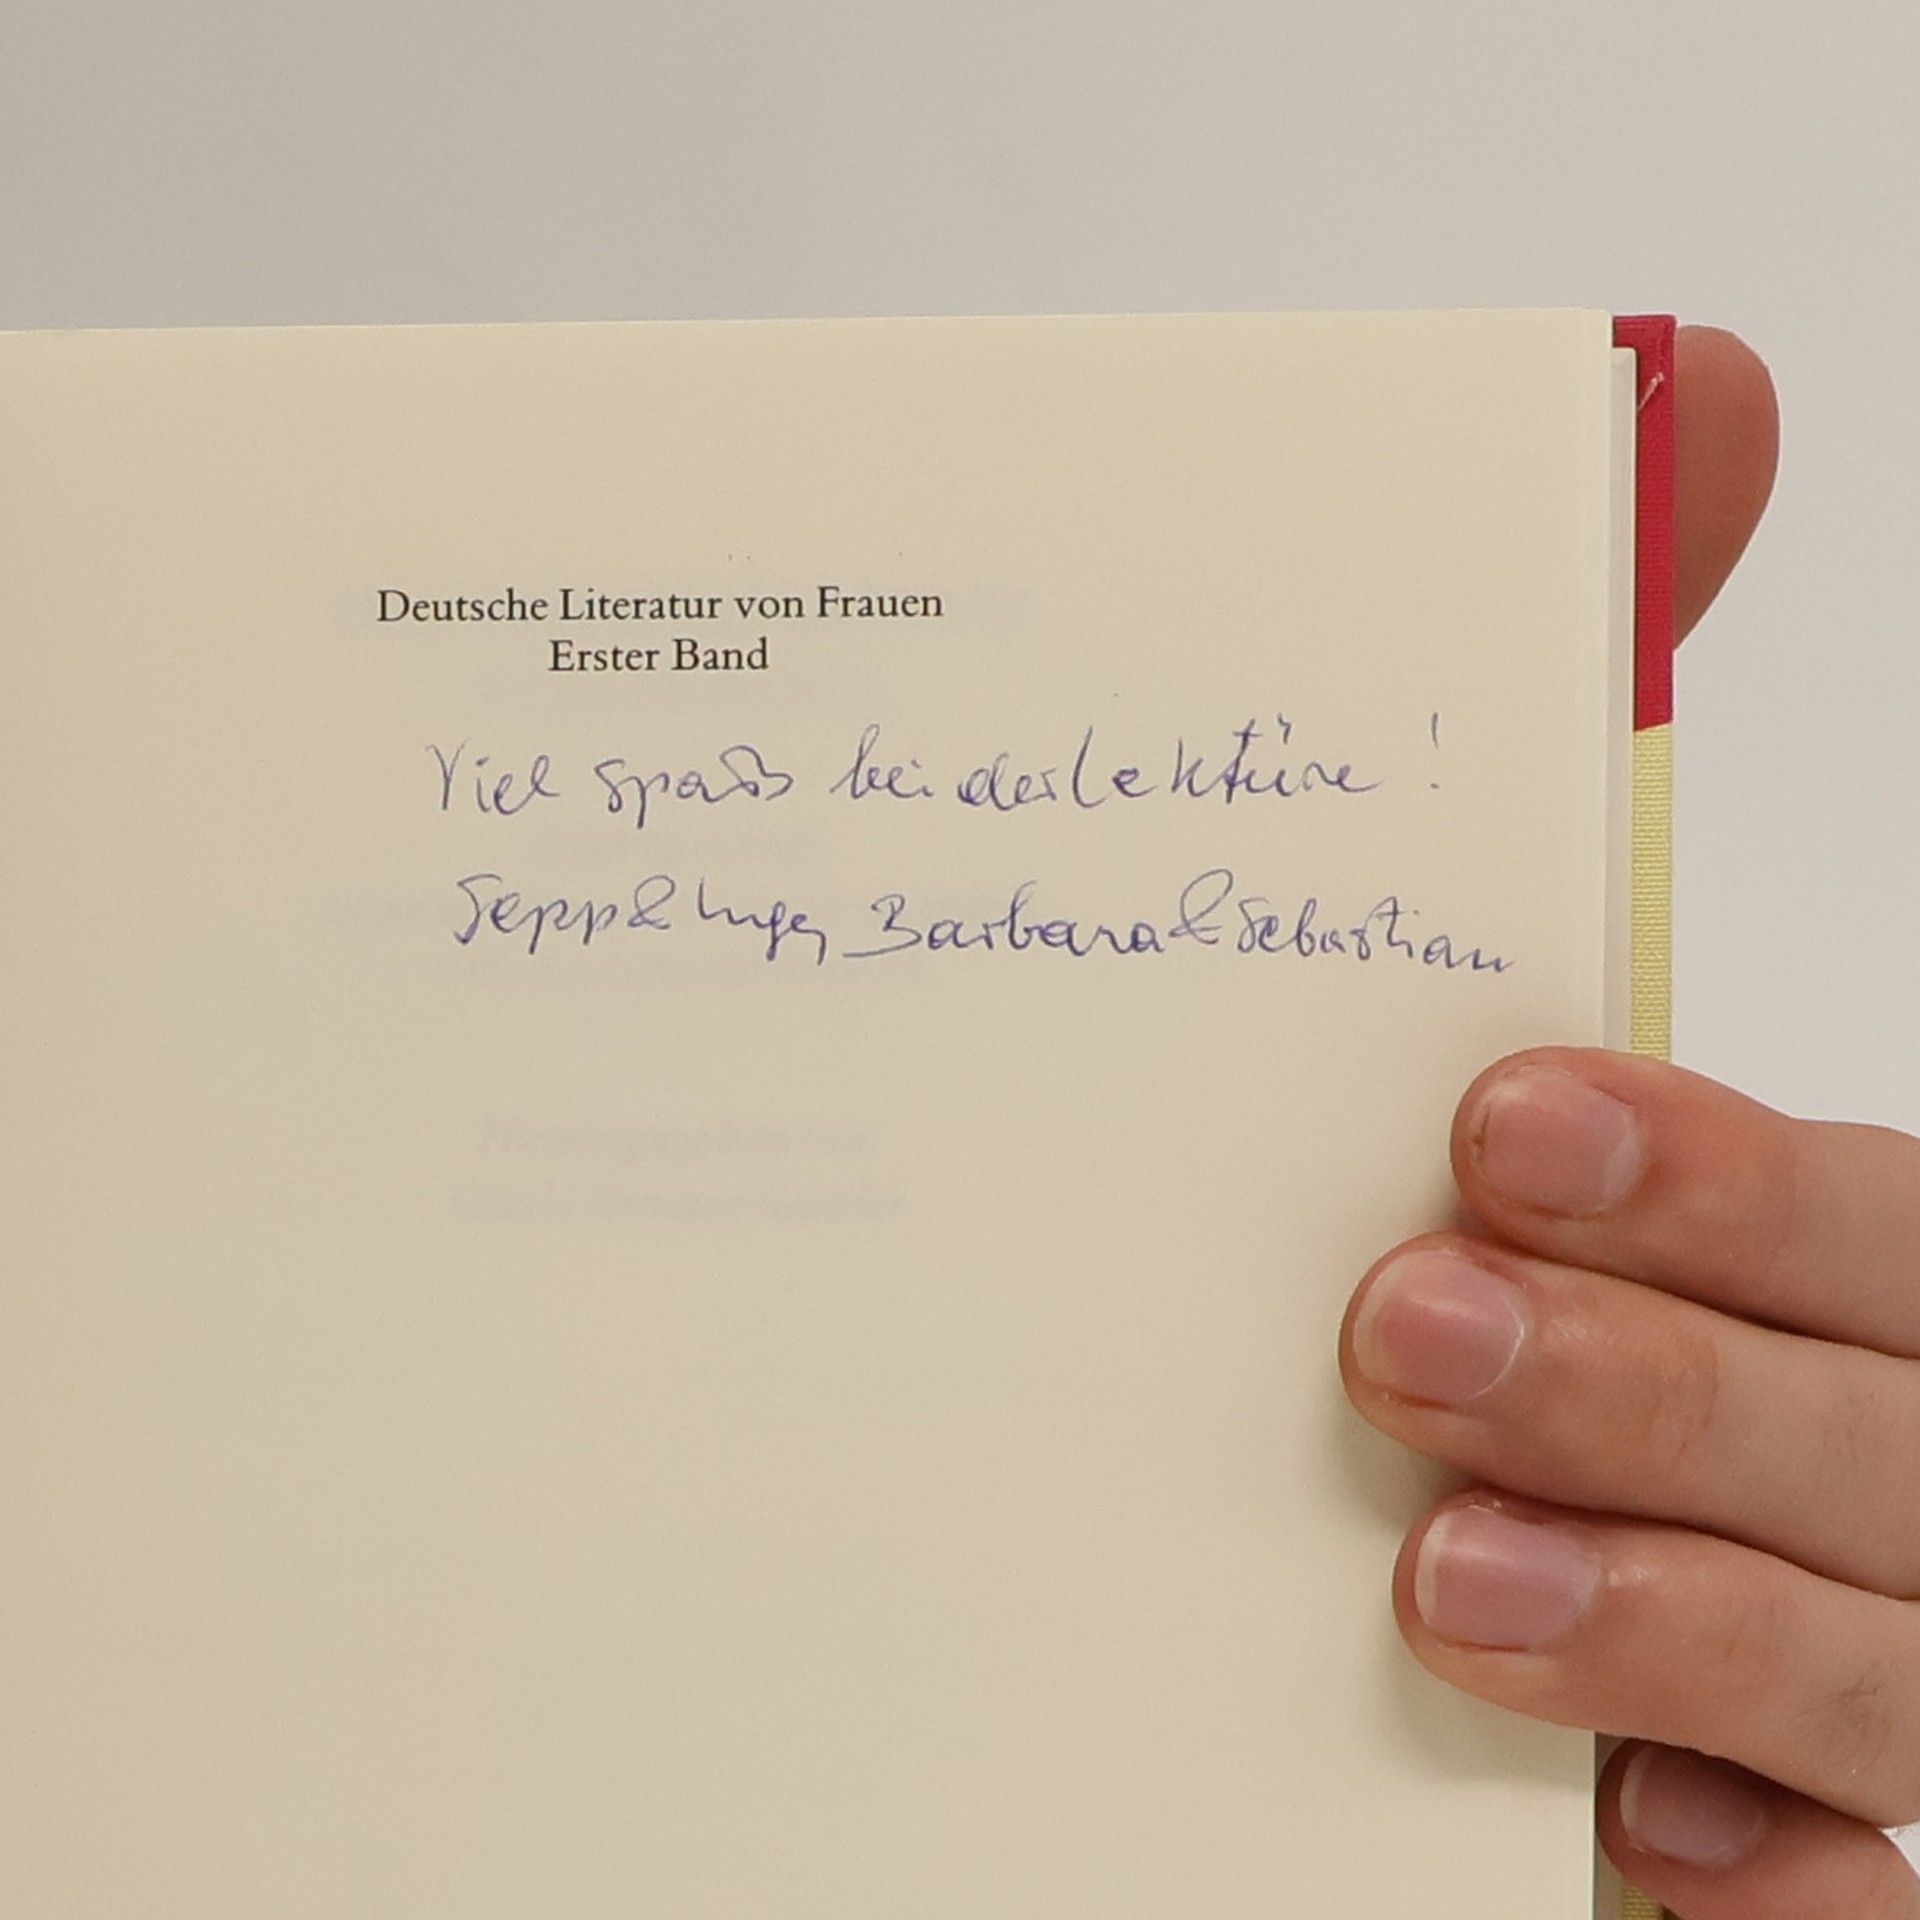 Deutsche Literatur von Frauen
Erster Band
Viel Spaß bei der Lektüre !
Sepp & Inge, Barbara & Sebastian